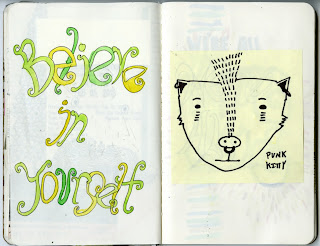 Believe
in
Yourself
PUNK
KITTY